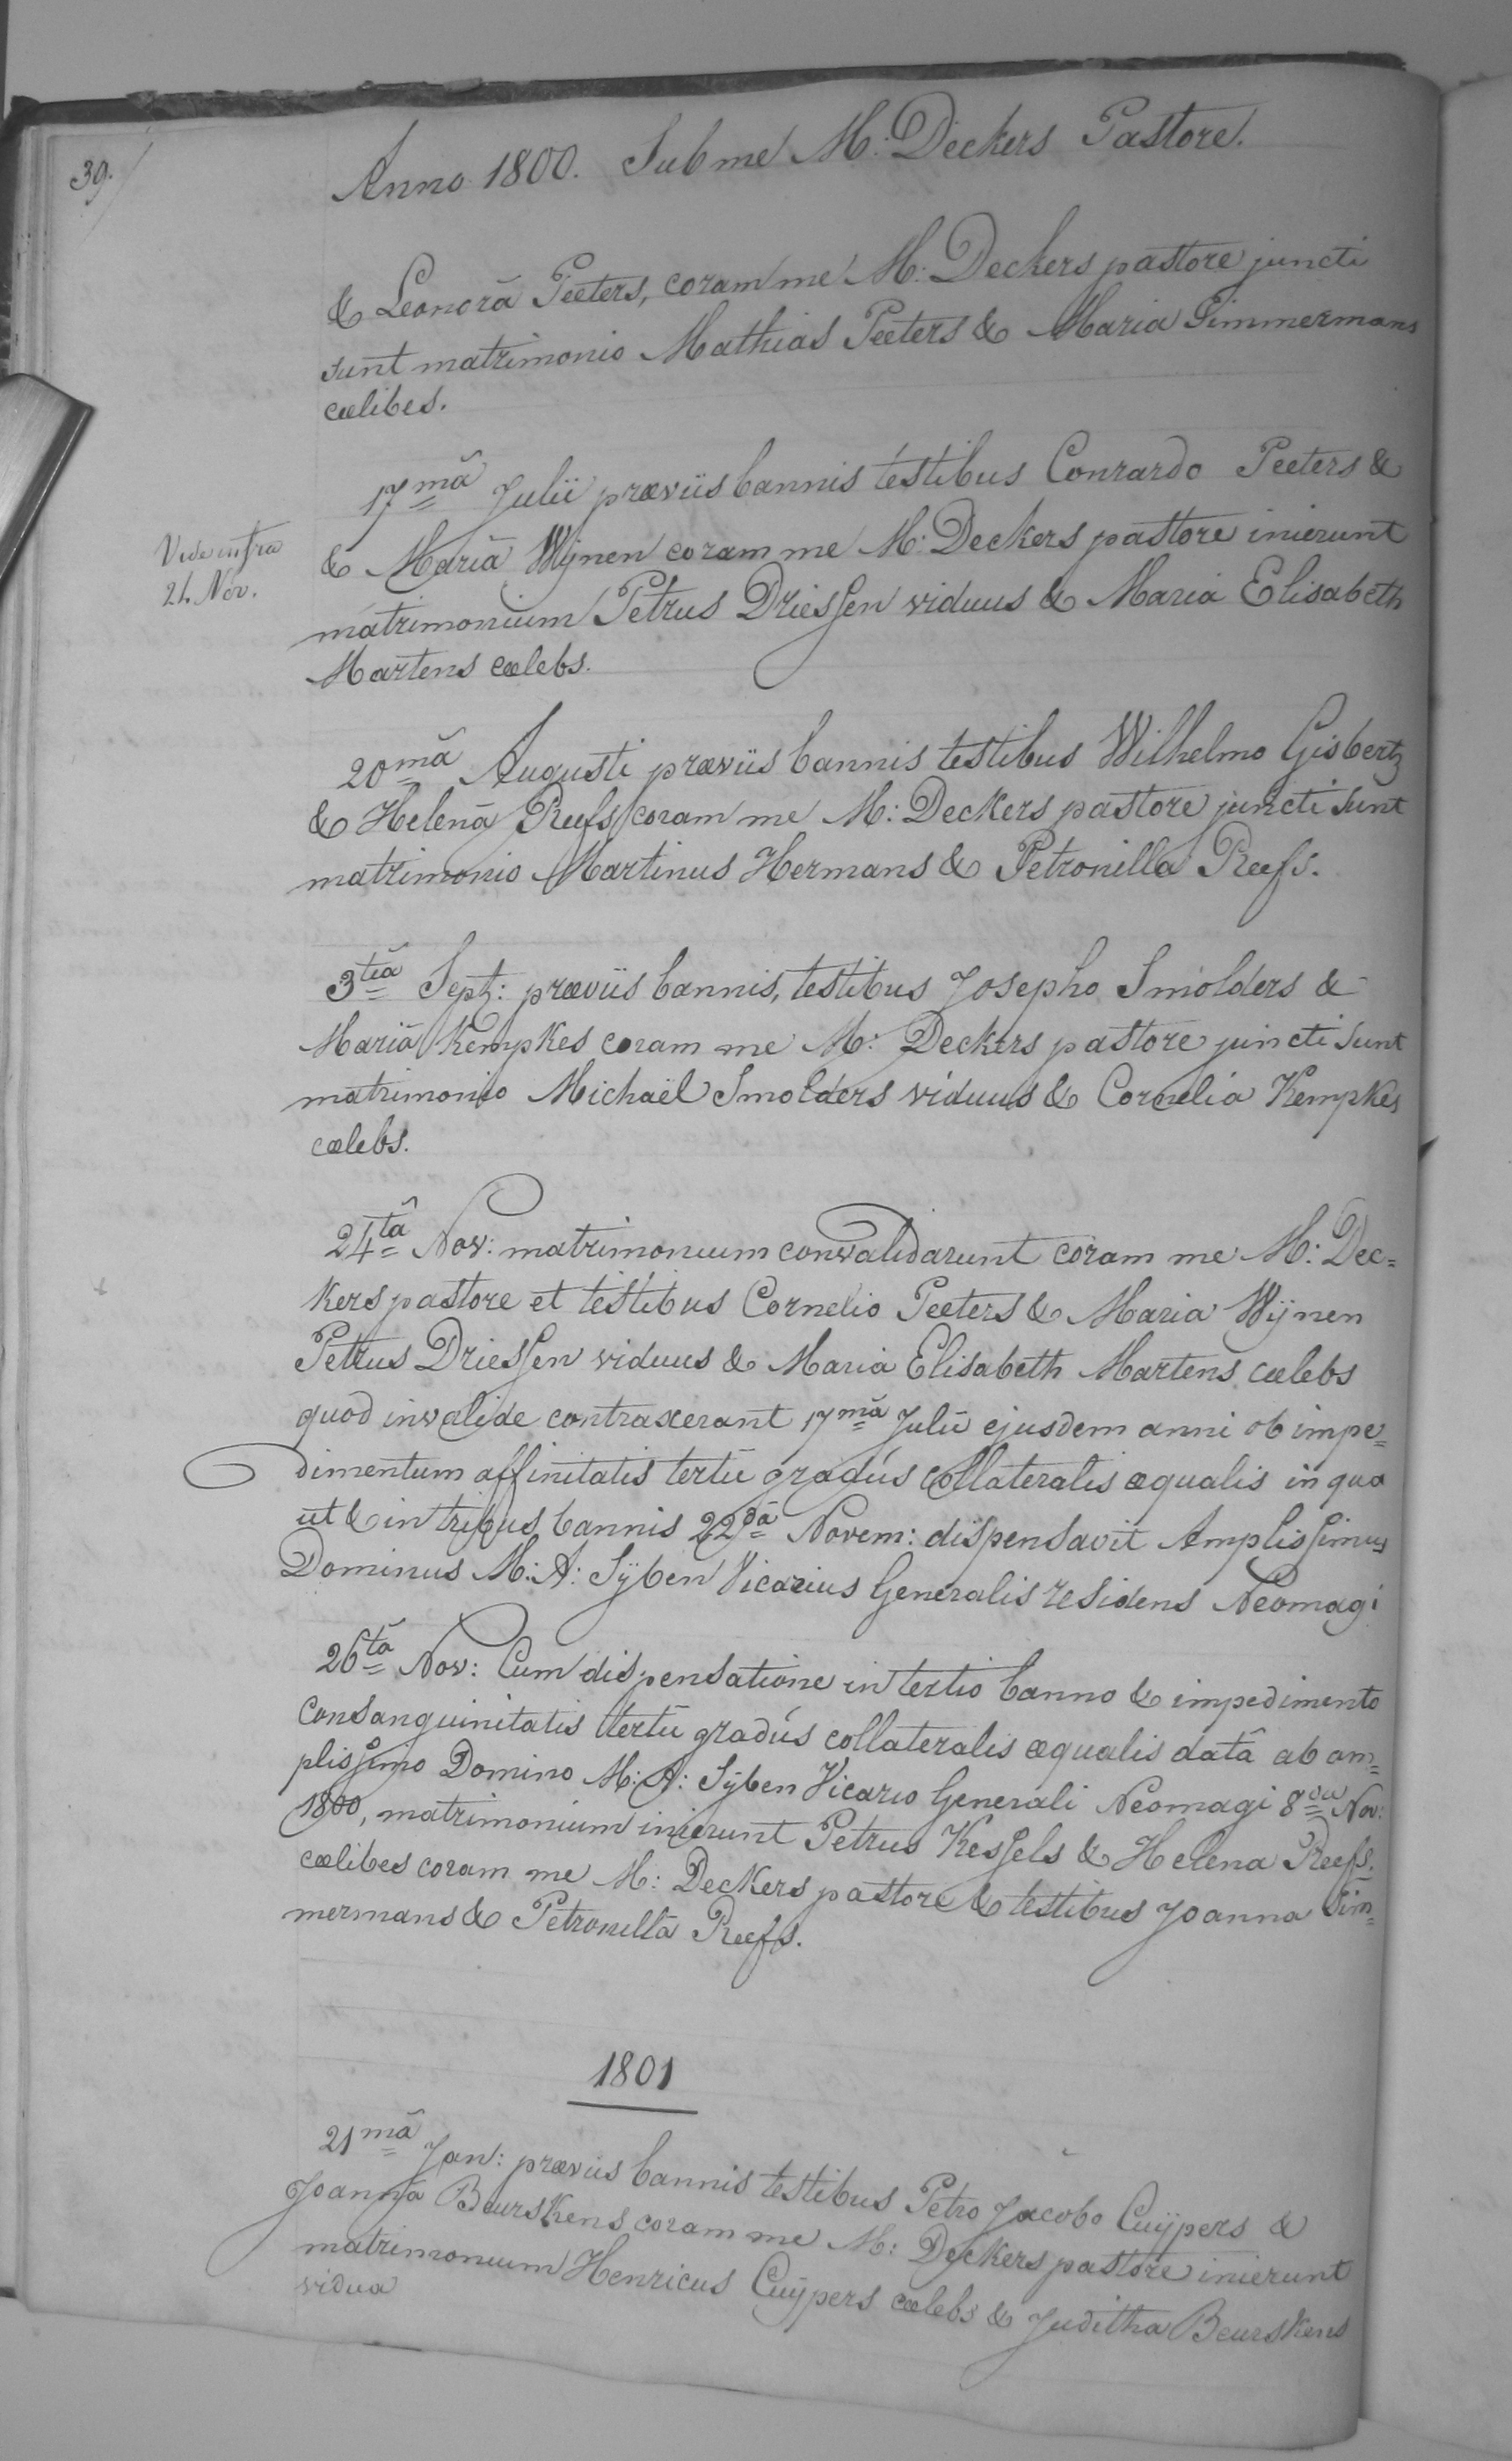 39.
Anno 1800. Sub me M: Deckers Pastore.
& Leonorâ Peeters, coram me M: Deckers pastore juncti
sunt matrimonio Mathias Peeters & Maria Simmermans
cœlibes.
17mâ Julii præviis bannis testibus Conrardo Peeters &
Vide infra
24 Nov.
& Mariâ Wijnen coram me M: Deckers pastore inierunt
matrimonium Petrus Driessen viduus & Maria Elisabeth
Martens cœlebs.
20mâ Augusti præviis bannis testibus Wilhelmo Gisbertz
& Helenâ Reefs coram me M: Deckers pastore juncti sunt
matrimonio Martinus Hermans & Petronilla Reefs.
3tiâ Sept: præviis bannis, testibus Josepho Smolders &
Mariâ Kempkes coram me M: Deckers pastore juncti sunt
matrimonio Michaël Smolders viduus & Cornelia Kempkes
cœlebs.
24tâ Nov: matrimonium convalidarunt coram me M: Dec=
kers pastore et testibus Cornelio Peeters & Maria Wijnen
Petrus Driessen viduus & Maria Elisabeth Martens cœlebs
quod invalide contraxerant 17mâ Julii ejusdem anni ob impe=
dimentum affinitatis tertii gradús collateralis æqualis in quo
ut & in tribus bannis 22dâ Novem: dispensavit Amplissimus
Dominus M: A: Sÿben Vicarius Generalis residens Neomagi
26tâ Nov: Cum dispensatione in tertio banno & impedimento
consanguinitatis tertii gradús collateralis æqualis datâ ab am=
plissimo Domino M: A: Sÿben Vicario Generali Neomagi 8va Nov:
1800, matrimonium inierunt Petrus Kessels & Helena Reefs.
cœlibes coram me M: Deckers pastore & testibus Joanna Sim=
mermans & Petronillâ Reefs.
1801
21mâ Jan: præviis bannis testibus Petro Jacobo Cuÿpers &
Joannâ Beurskens coram me M: Deckers pastore inierunt
matrimonium Henricus Cuÿpers cœlebs & Juditha Beurskens
vidua